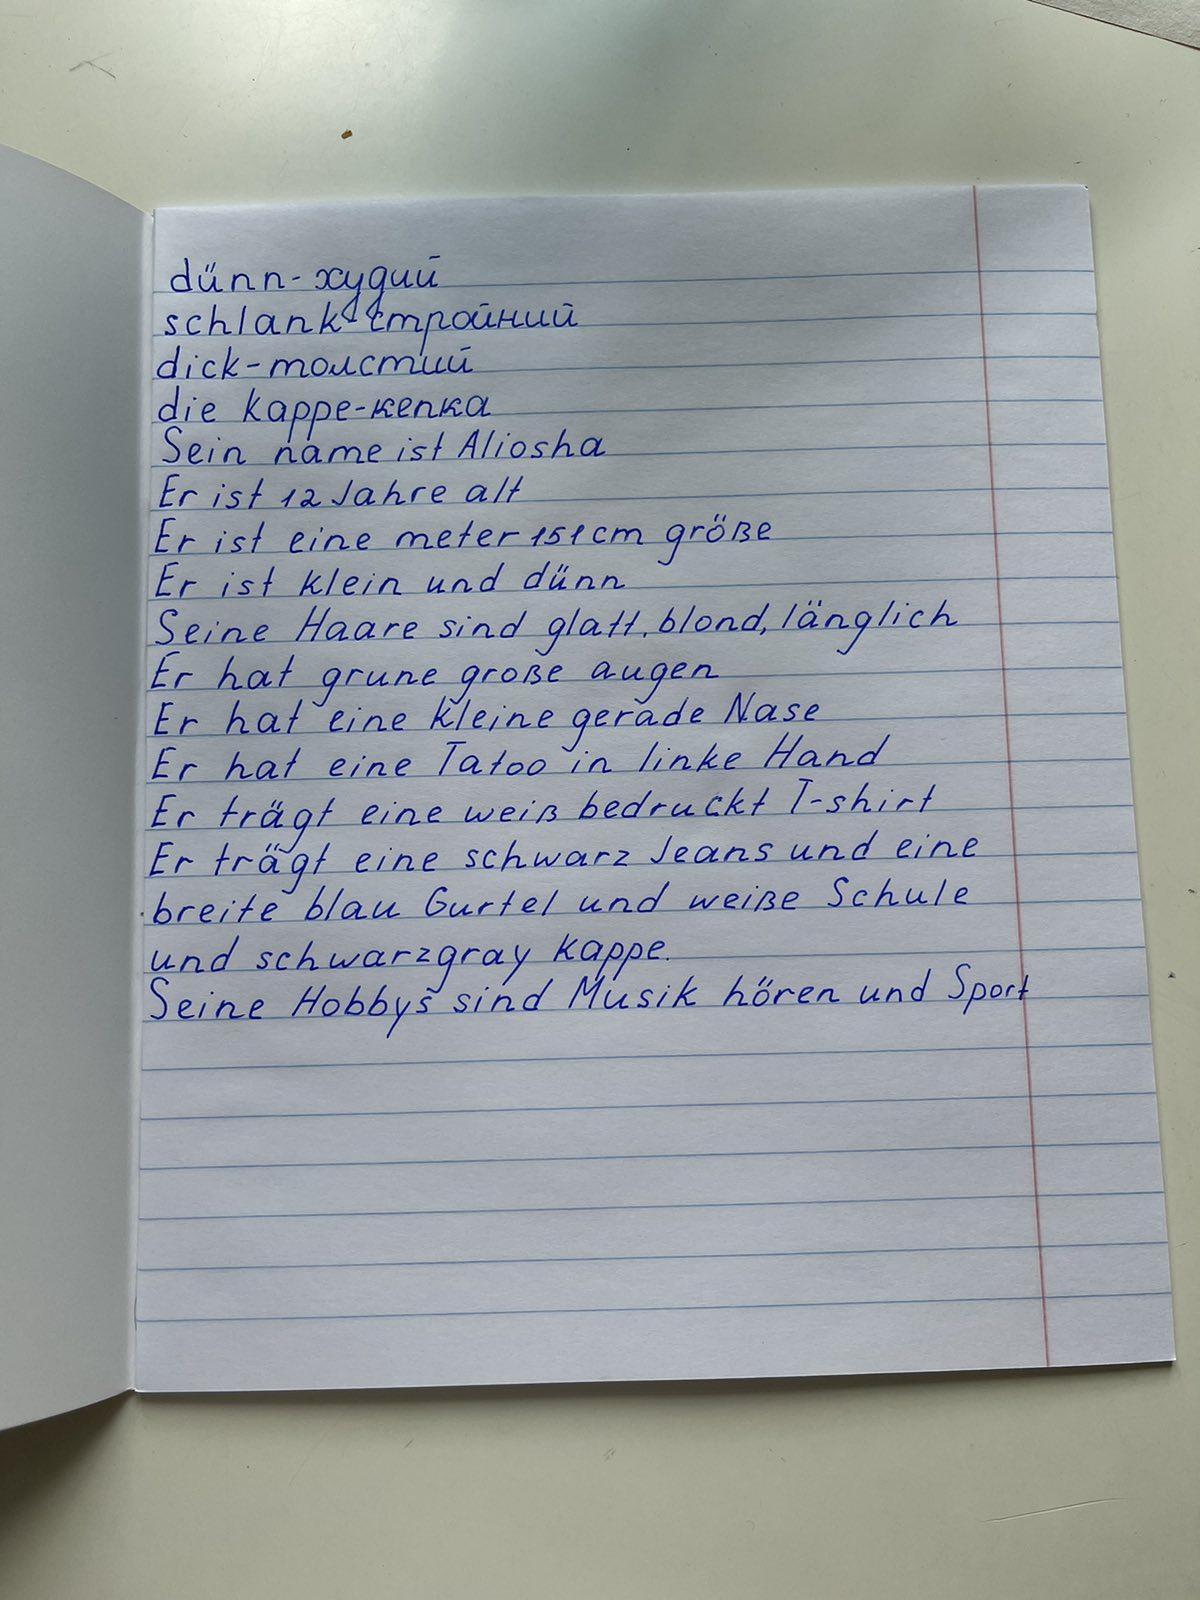 dünn-худий
schlank-стройний
dick-толстий
die kappe-кепка
Sein name ist Aliosha
Er ist 12 Jahre alt
Er ist eine meter 151cm größe
Er ist klein und dünn
Seine Haare sind glatt, blond, länglich
Er hat grune große augen
Er hat eine kleine gerade Nase
Er hat eine Tatoo in linke Hand
Er trägt eine weiß bedruckt T-shirt
Er trägt eine schwarz Jeans und eine
breite blau Gurtel und weiße Schule
und schwarzgray kappe.
Seine Hobbys sind Musik hören und Sport